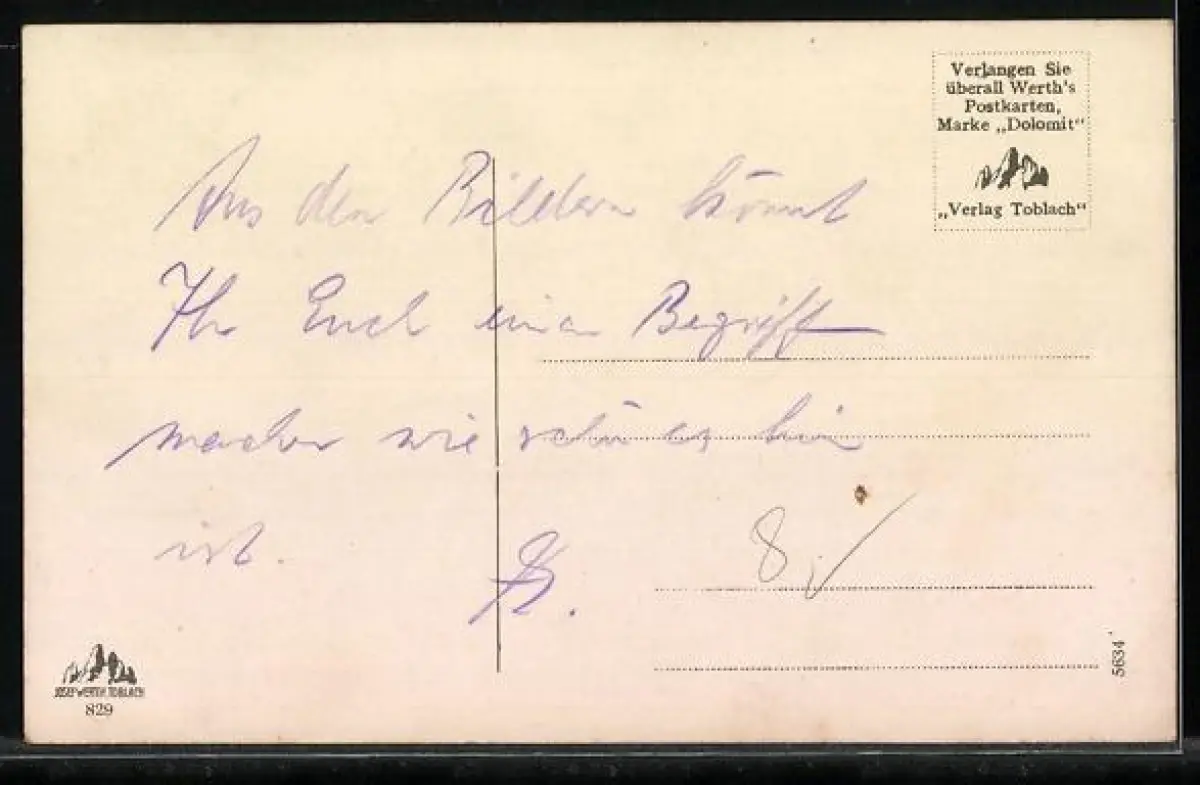 Verlangen Sie
überall Werth's
Postkarten,
Marke „Dolomit"
„Verlag Toblach"
Aus den Bildern könnt
Ihr Euch einen Begriff
machen wie schön es hier
ist.
8,
JOSEF WERTH, TOBLACH
829
5634